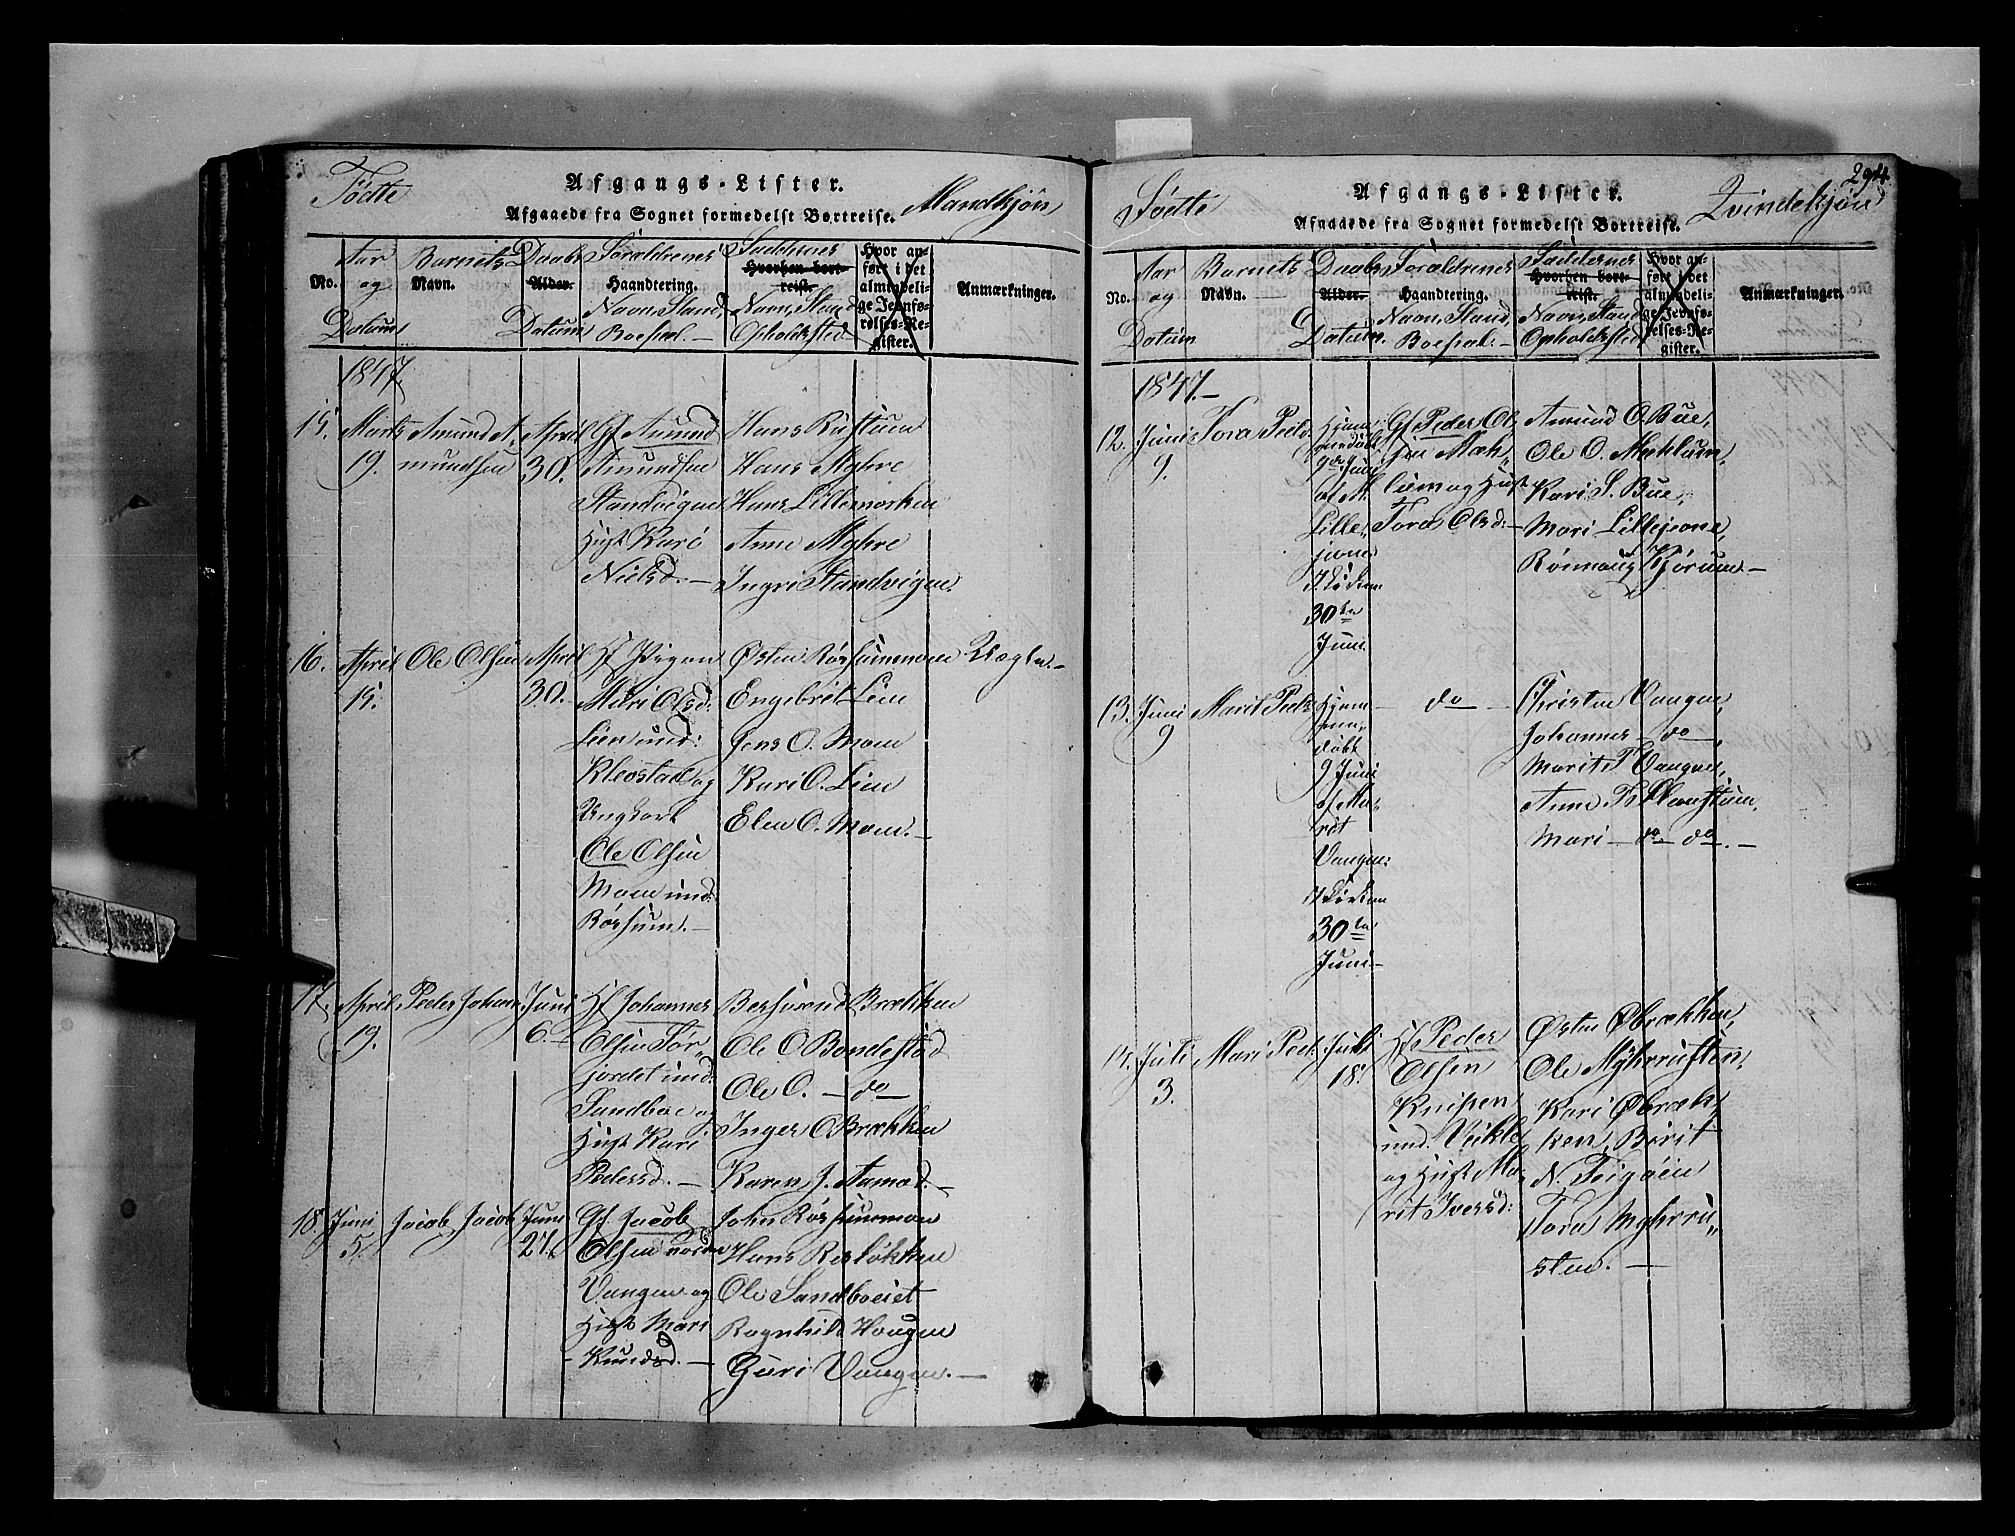 Fødte
Afgangs-Lister.
Mandkjøn
Afgaaede fra Sognet formedelst Bortreise.
No.
Aar og Datum
Barnets Navn.
Daabs Alder. Datum
Forældrenes Haandtering. Navn, Stand, Boepæl.
Faddernes Hvorhen bortreist. Navn, Stand Opholdssted
Hvor anført i det almindelige Jevnførelses-Register.
Anmærkninger.
1847.
15. Marts 19.
Amund Amundsen
April 30.
Gf Amund
Amundsen
Standvigen
Hust Kari
Nielsd. —
Hans Rustum
Hans Myhre
Hans Lillemorken
Anne Myhre
Ingri Standvigen.
16. April 15.
Ole Olsen
April 30.
Pigen
Mari Olsd:
Lien und:
Kleostad og
Ungkarl
Ole Olsen
Moen und:
Røssum. —
Østen Røssummoen
Engebret Lien
Jens O. Moen
Kari O. Lien
Elen O. Moen. —
Uægte. —
17. April 19.
Peder Johan
Juni 6.
Hf Johannes
Olsen Sør-
jordet und:
Sandboe og
Hust Kari
Pedersd. —
Bersvend Brækken
Ole O Bondestød
Ole O. — do —
Inger O Brækken
Karen J. Aamod. —
18. Juni 5.
Jacob Jacobs
Juni 27.
Gf Jacob
Olsen
Vangen og
Hust Mari
Knudsd. —
John Røssummoen
Hans Resløkken
Ole Sandboeiet
Ragnhild Hougen
Guri Vangen. —
294.
Fødte
Afgangs-Lister.
Qvindekjøn
Afgaaede fra Sognet formedelst Bortreise.
No.
Aar og Datum
Barnets Navn.
Daabs Alder. Datum.
Forældrenes Haandtering. Navn, Stand, Boepæl: —
Faddernes Hvorhen bortreist. Navn, Stand Opholdssted
Hvor anført i det almindelige Jevnførelses-Register.
Anmærkninger.
1847. —
12. Juni 9.
Tora Pedd.
Hjem-
medøbt
9de Juni
af M.
Lille-
jione
I Kirken
30te
Juni
Gf Peder Ol-
sen Mæh-
lum og Hust
Tora Olsd: —
Amund O. Bue,
Ole O. Mæhlum,
Kari S. Bue,
Mari Lillejione,
Rønnaug Kjørum. —
13. Juni 9
Marit Ped:
Hjem-
me-
døbt
9 Juni
af Ma-
rit
Vangen:
I Kirken
30te
Juni —
— do —
Christen Vangen,
Johannes — do —,
Marit T Vangen,
Anne T Slaastuen,
Mari — do — do. —
14. Juli 3.
Mari Ped:
Juli 18.
Hf Peder
Olsen
Knipen
und. Veikle
og Hust Ma-
rit Iversd:
Østen Øbrækken,
Ole Myhrrusten,
Kari Øbræk-
ken, Birit
N. Teigøen
Tora Myhrru-
sten. —